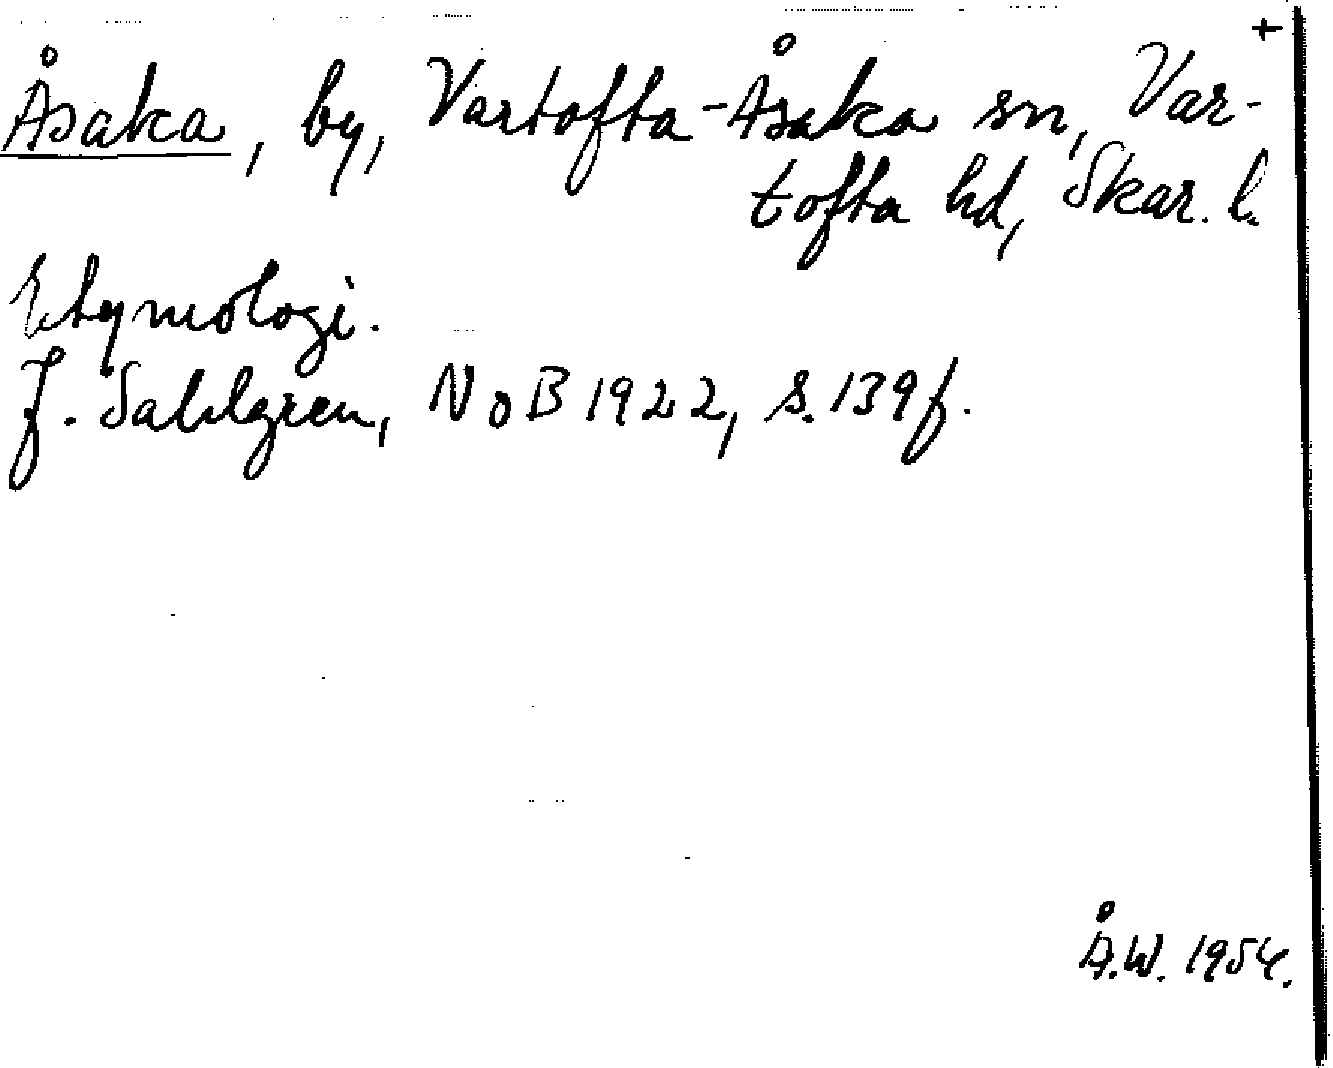 +
Åsaka, by, Vartofta-Åsaka sn, Var-
tofta hd, Skar. l.
Etymologi.
J. Sahlgren, NoB 1922, s. 139f.
Å.W. 1954.